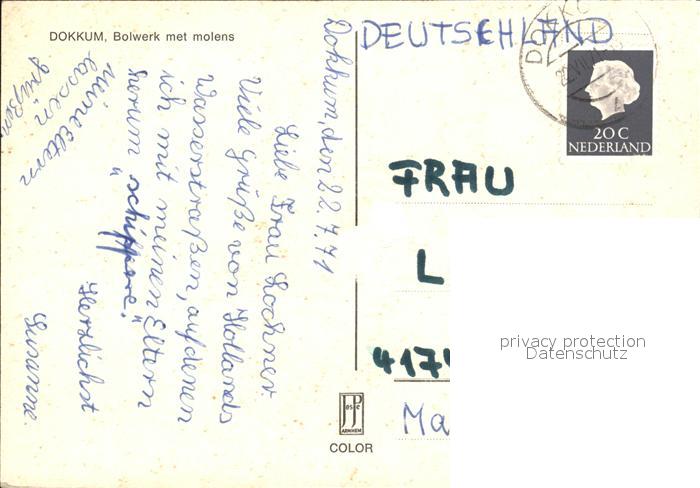 DOKKUM, Bolwerk met molens
Dokkum, den 22.7.71
Liebe Frau Lochner.
Viele Grüße von Hollands
Wasserstraßen, auf denen
ich mit meinen Eltern
herum „schippere."
Herzlichst
Susanne.
Meine Eltern
lassen
grüßen
DEUTSCHLAND
20 C
NEDERLAND
FRAU
L
4174
Ma
privacy protection
Datenschutz
JosPé
ARNHEM
COLOR